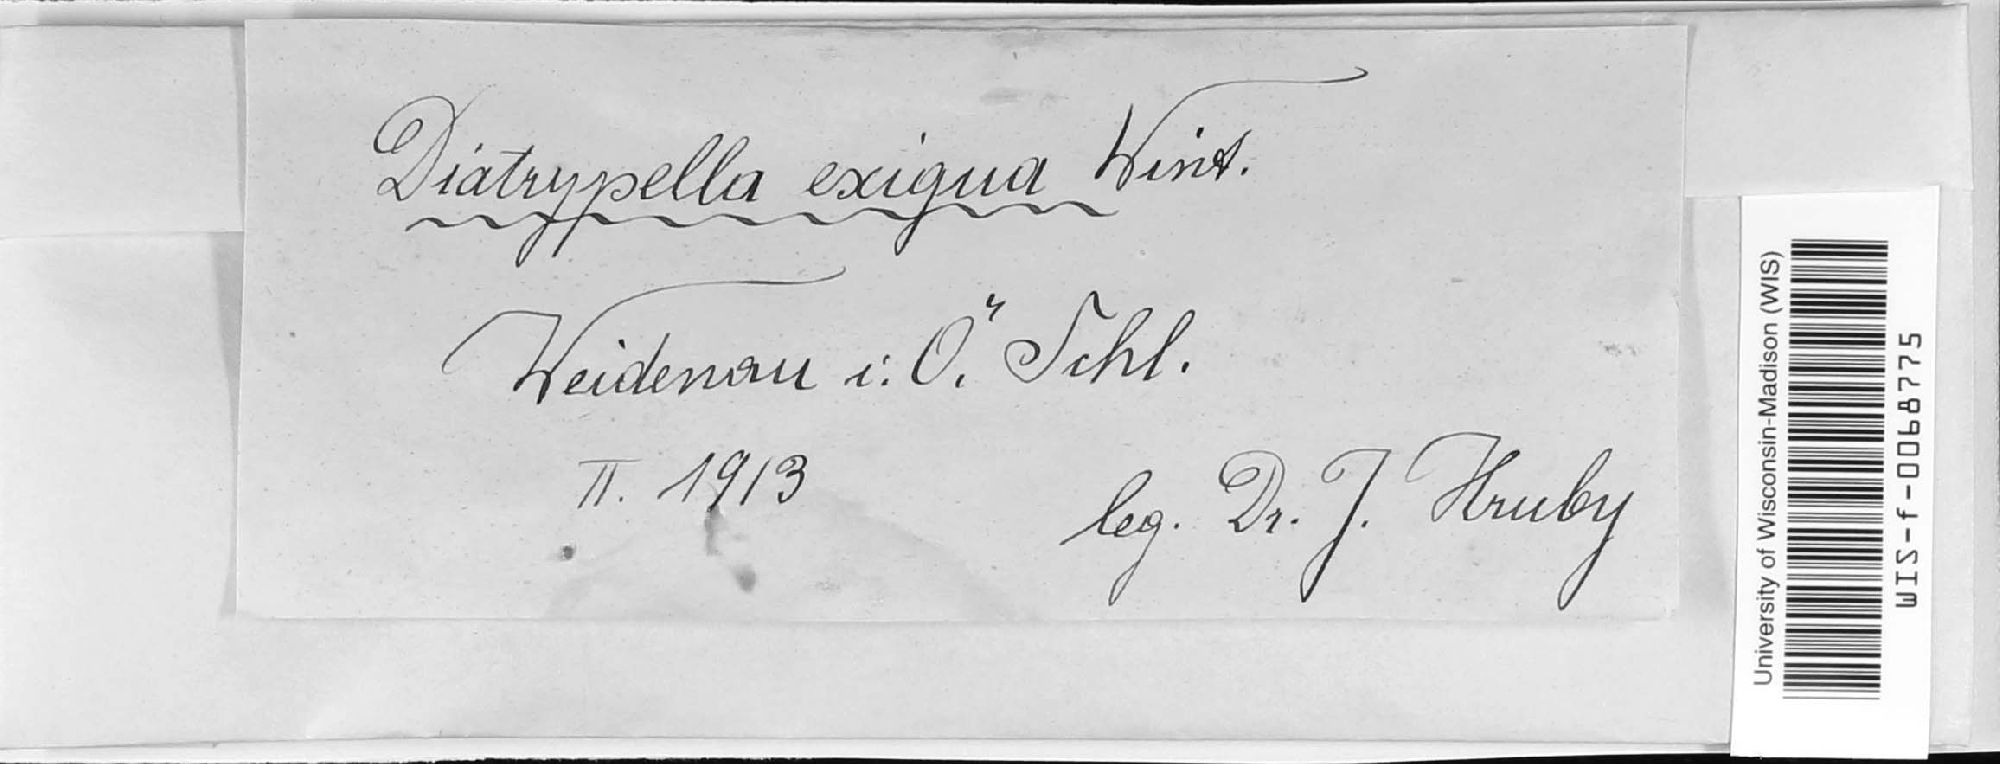 Diatrypella exigua Wint.
Weidenau i. Ö. Schl.
II. 1913
leg. Dr. J. Hruby
University of Wisconsin-Madison (WIS)
WIS-f-0068775